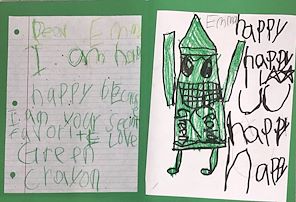 Dear Emma
I am happy
happy because
I am your
favorite
Green
Crayon
Emma
happy
happy
happy
happy